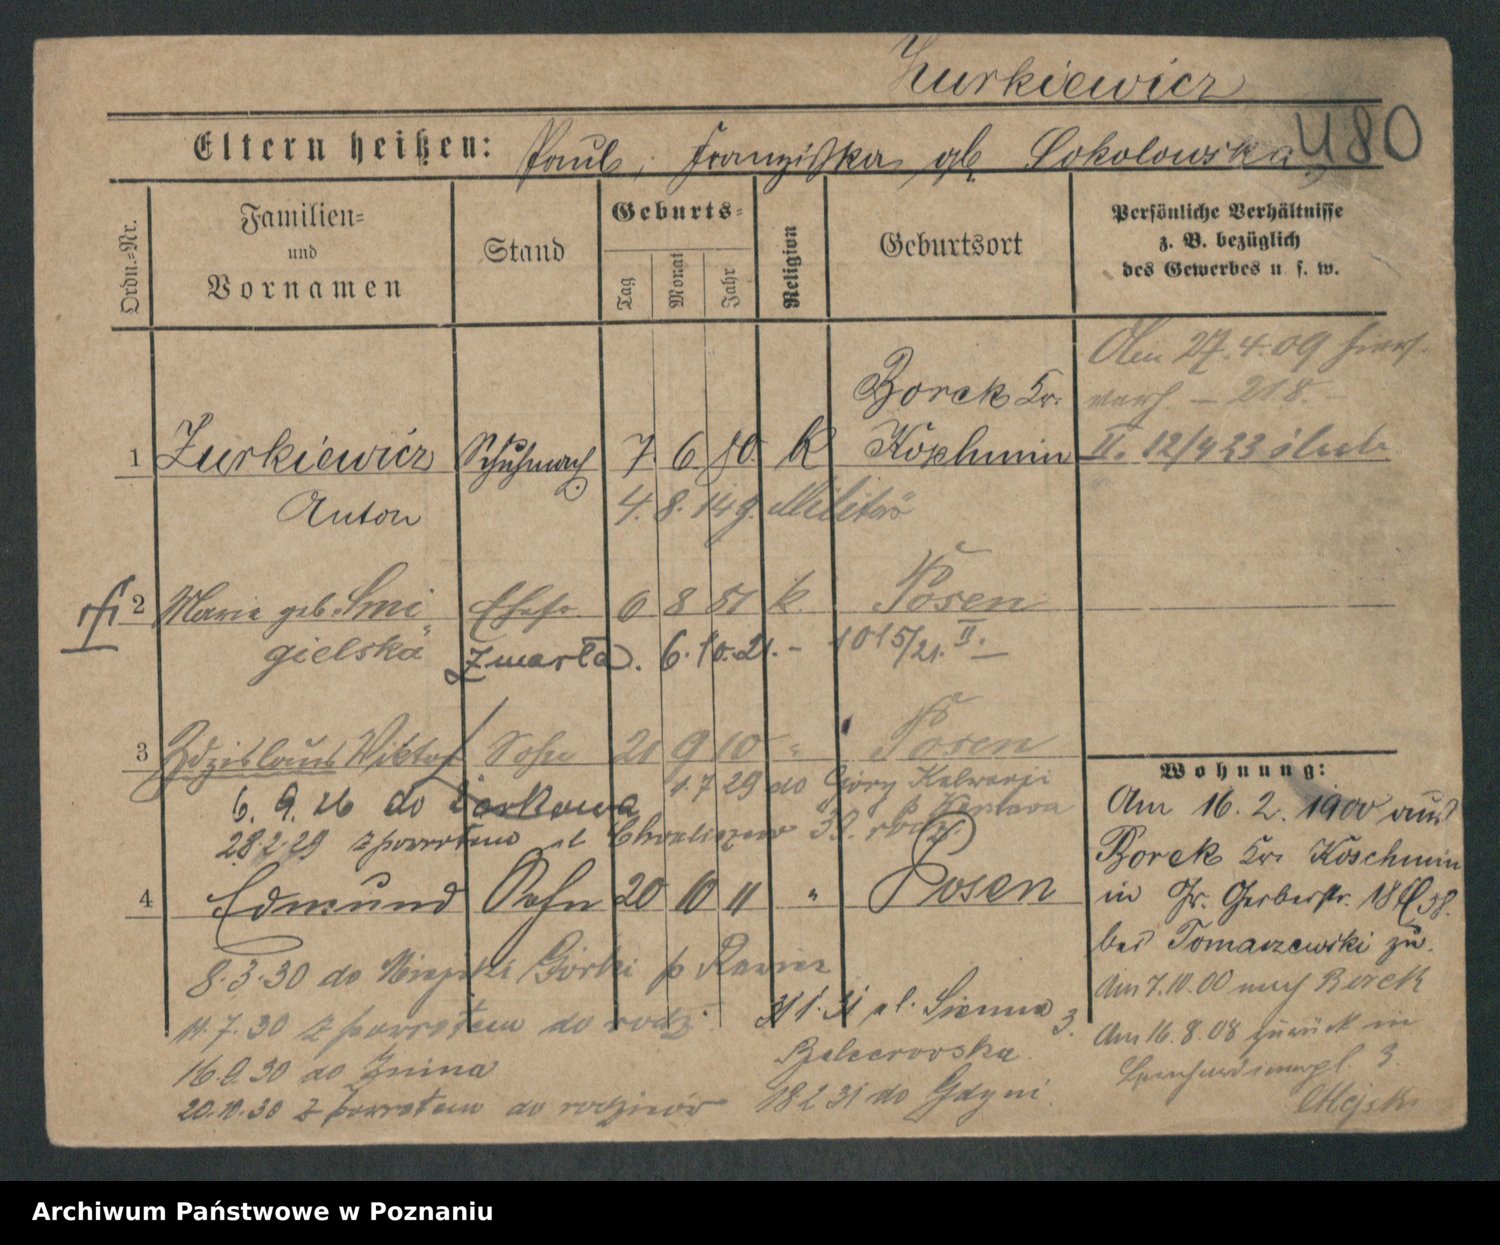 Zurkiewicz
480
Eltern heißen: Paul, Franziska gb. Sokolowska
Ordn.=Nr.
Familien=
und
Vornamen
Stand
Geburts=
Tag
Monat
Jahr
Religion
Geburtsort
Persönliche Verhältnisse
z. B. bezüglich
des Gewerbes u. s. w.
Den 27.4.09 hier
verh. – 218. –
II. 12/4 23
Borek Kr.
1 Zurkiewicz Schuhmach. 7. 6. 80. K Koschmin
Anton
4. 8. 14 g. Militär
2 Marie geb. Smi Ehefr. 6 8 81 k. Posen
gielska Zmarła. 6.10.21. – 1015/21. II. –
3 Zdzislaus Viktor Sohn 21 9 10 " Posen
1.7 29 do Góry Kalwarji
6. 9. 26 do Żerkowa
28.2.29 z powrotem ul Chwaliszewo 39. rodz.
4 Edmund Sohn 20 10 11 " Posen
8.3.30 do Górki p Rawicz
11.7.30 z powrotem do rodz.
16.9.30 do Żnina
20.10.30 z powrotem do rodziców
31 1. 31 ul. Sienna 3.
18 2 31 do Gdyni
Wohnung:
Am 16. 2. 1900 aus
Borek Kr. Koschmin
in Gr. Gerberstr. 18
bei Tomaszewski zu.
Am 7.10.00 nach Borek
Am 16.8.08 zurück in
Bernhardinerpl. 3.
Archiwum Państwowe w Poznaniu